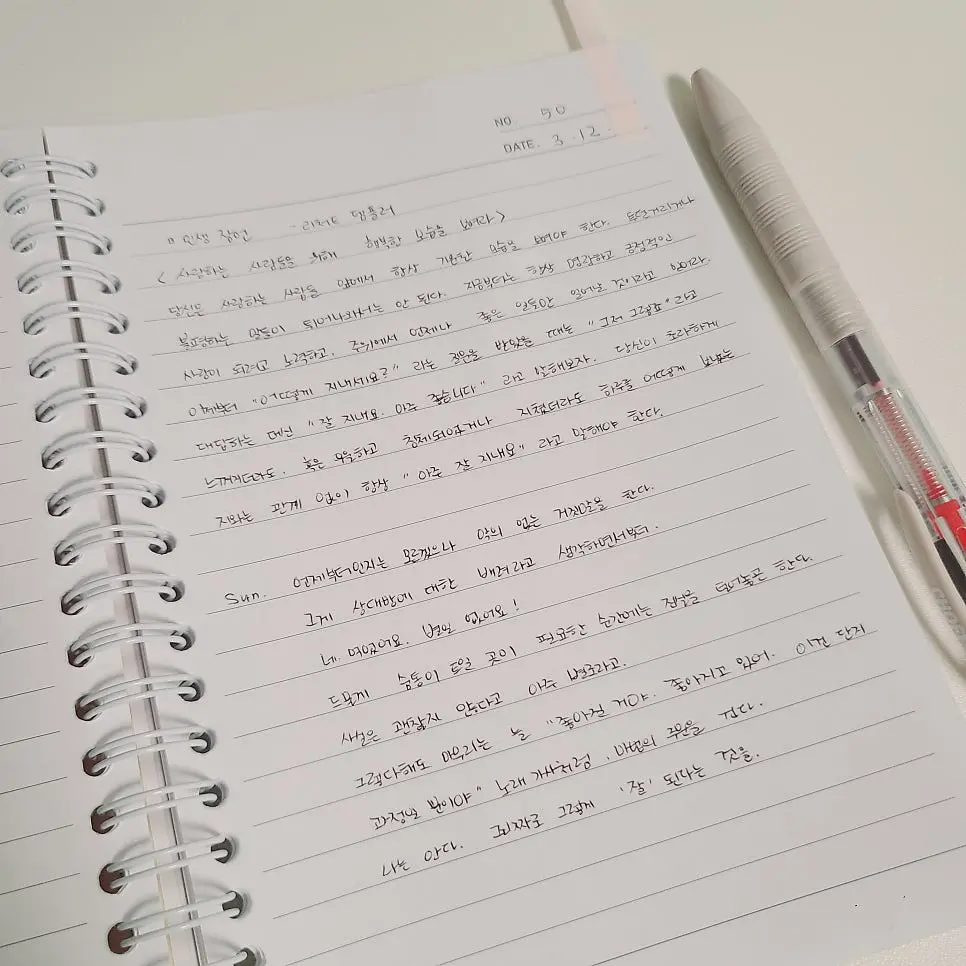 NO. 50
DATE. 3. 12.
인생 잠언 - 리처드 템플러
< 사랑하는 사람들을 위해 행복한 모습을 보여라 >
당신은 사랑하는 사람들 앞에서 항상 기운찬 모습을 보여야 한다. 투덜거리거나
불평하는 말들이 튀어나와서는 안 된다. 지금부터는 항상 명랑하고 긍정적인
사람이 되려고 노력하고, 주위에서 언제나 좋은 일들만 일어날 것이라고 믿어라.
이제부터 "어떻게 지내세요?" 라는 질문을 받았을 때는 "그저 그래요" 라고
대답하는 대신 "잘 지내요. 아주 좋습니다" 라고 말해보자. 당신이 초라하게
느껴지더라도. 혹은 우울하고 침체되었거나 지쳤더라도 하루를 어떻게 보냈는
지와는 관계 없이 항상 "아주 잘 지내요" 라고 말해야 한다.
Sun. 언제부터인지는 모르겠으나 악의 없는 거짓말을 한다.
그게 상대방에 대한 배려라고 생각하면서부터.
네. 별일 없어요!
드물게 숨통이 트일 곳이 필요한 순간에는 진실을 털어놓곤 한다.
사실은 괜찮지 않다고 아주 별로라고.
그렇다해도 마무리는 늘 "좋아질 거야. 좋아지고 있어. 이건 단지
과정일 뿐이야" 노래 가사처럼, 마법의 주문을 건다.
나는 안다. 진짜로 그렇게 '잘' 된다는 것을.